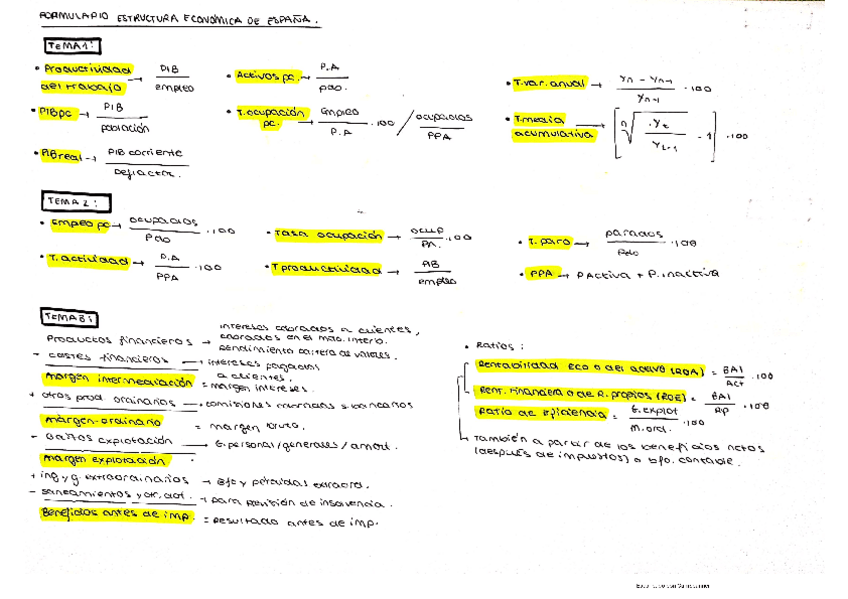 FORMULARIO ESTRUCTURA ECONÓMICA DE ESPAÑA.
TEMA 1:
• Productividad del trabajo → PIB / empleo
• Activos pc. → P.A / pob.
• T.var. anual → Yn - Yn-1 / Yn-1 · 100
• PIBpc → PIB / población
• T.ocupación pc. → Empleo / P.A · 100 / ocupados / PPA
• T.media acumulativa → [ n√ Yt / Yt-1 - 1 ] · 100
• PIB real → PIB corriente / Deflactor.
TEMA 2:
• Empleo pc → ocupados / Pob · 100
• Tasa ocupación → ocup / PA. · 100
• T. paro → parados / Pob · 100
• T. actividad → P.A / PPA · 100
• T productividad → AB / empleo
• PPA → P Activa + P. inactiva
TEMA 8:
Productos financieros → intereses cobrados a clientes, cobrados en el mdo. interb. rendimiento cartera de valores.
- costes financieros → intereses pagados a clientes.
margen intermediación = margen intereses.
+ otros prod. ordinarios → comisiones
margen ordinario = margen bruto.
- Gastos explotación → G. personal / generales / amort.
margen explotación
+ ing y g. extraordinarios → Bfo y pérdidas extraord.
- saneamientos → para previsión de insolvencia.
Beneficios antes de imp. = resultado antes de imp.
• Ratios:
Rentabilidad eco o del activo (ROA) = BAI / ACT · 100
Rent. Financiera o de R. propios (ROE) = BAI / RP · 100
Ratio de eficiencia = G. explot / M. ord. · 100
también a partir de los beneficios netos
(después de impuestos) o bfo. contable.